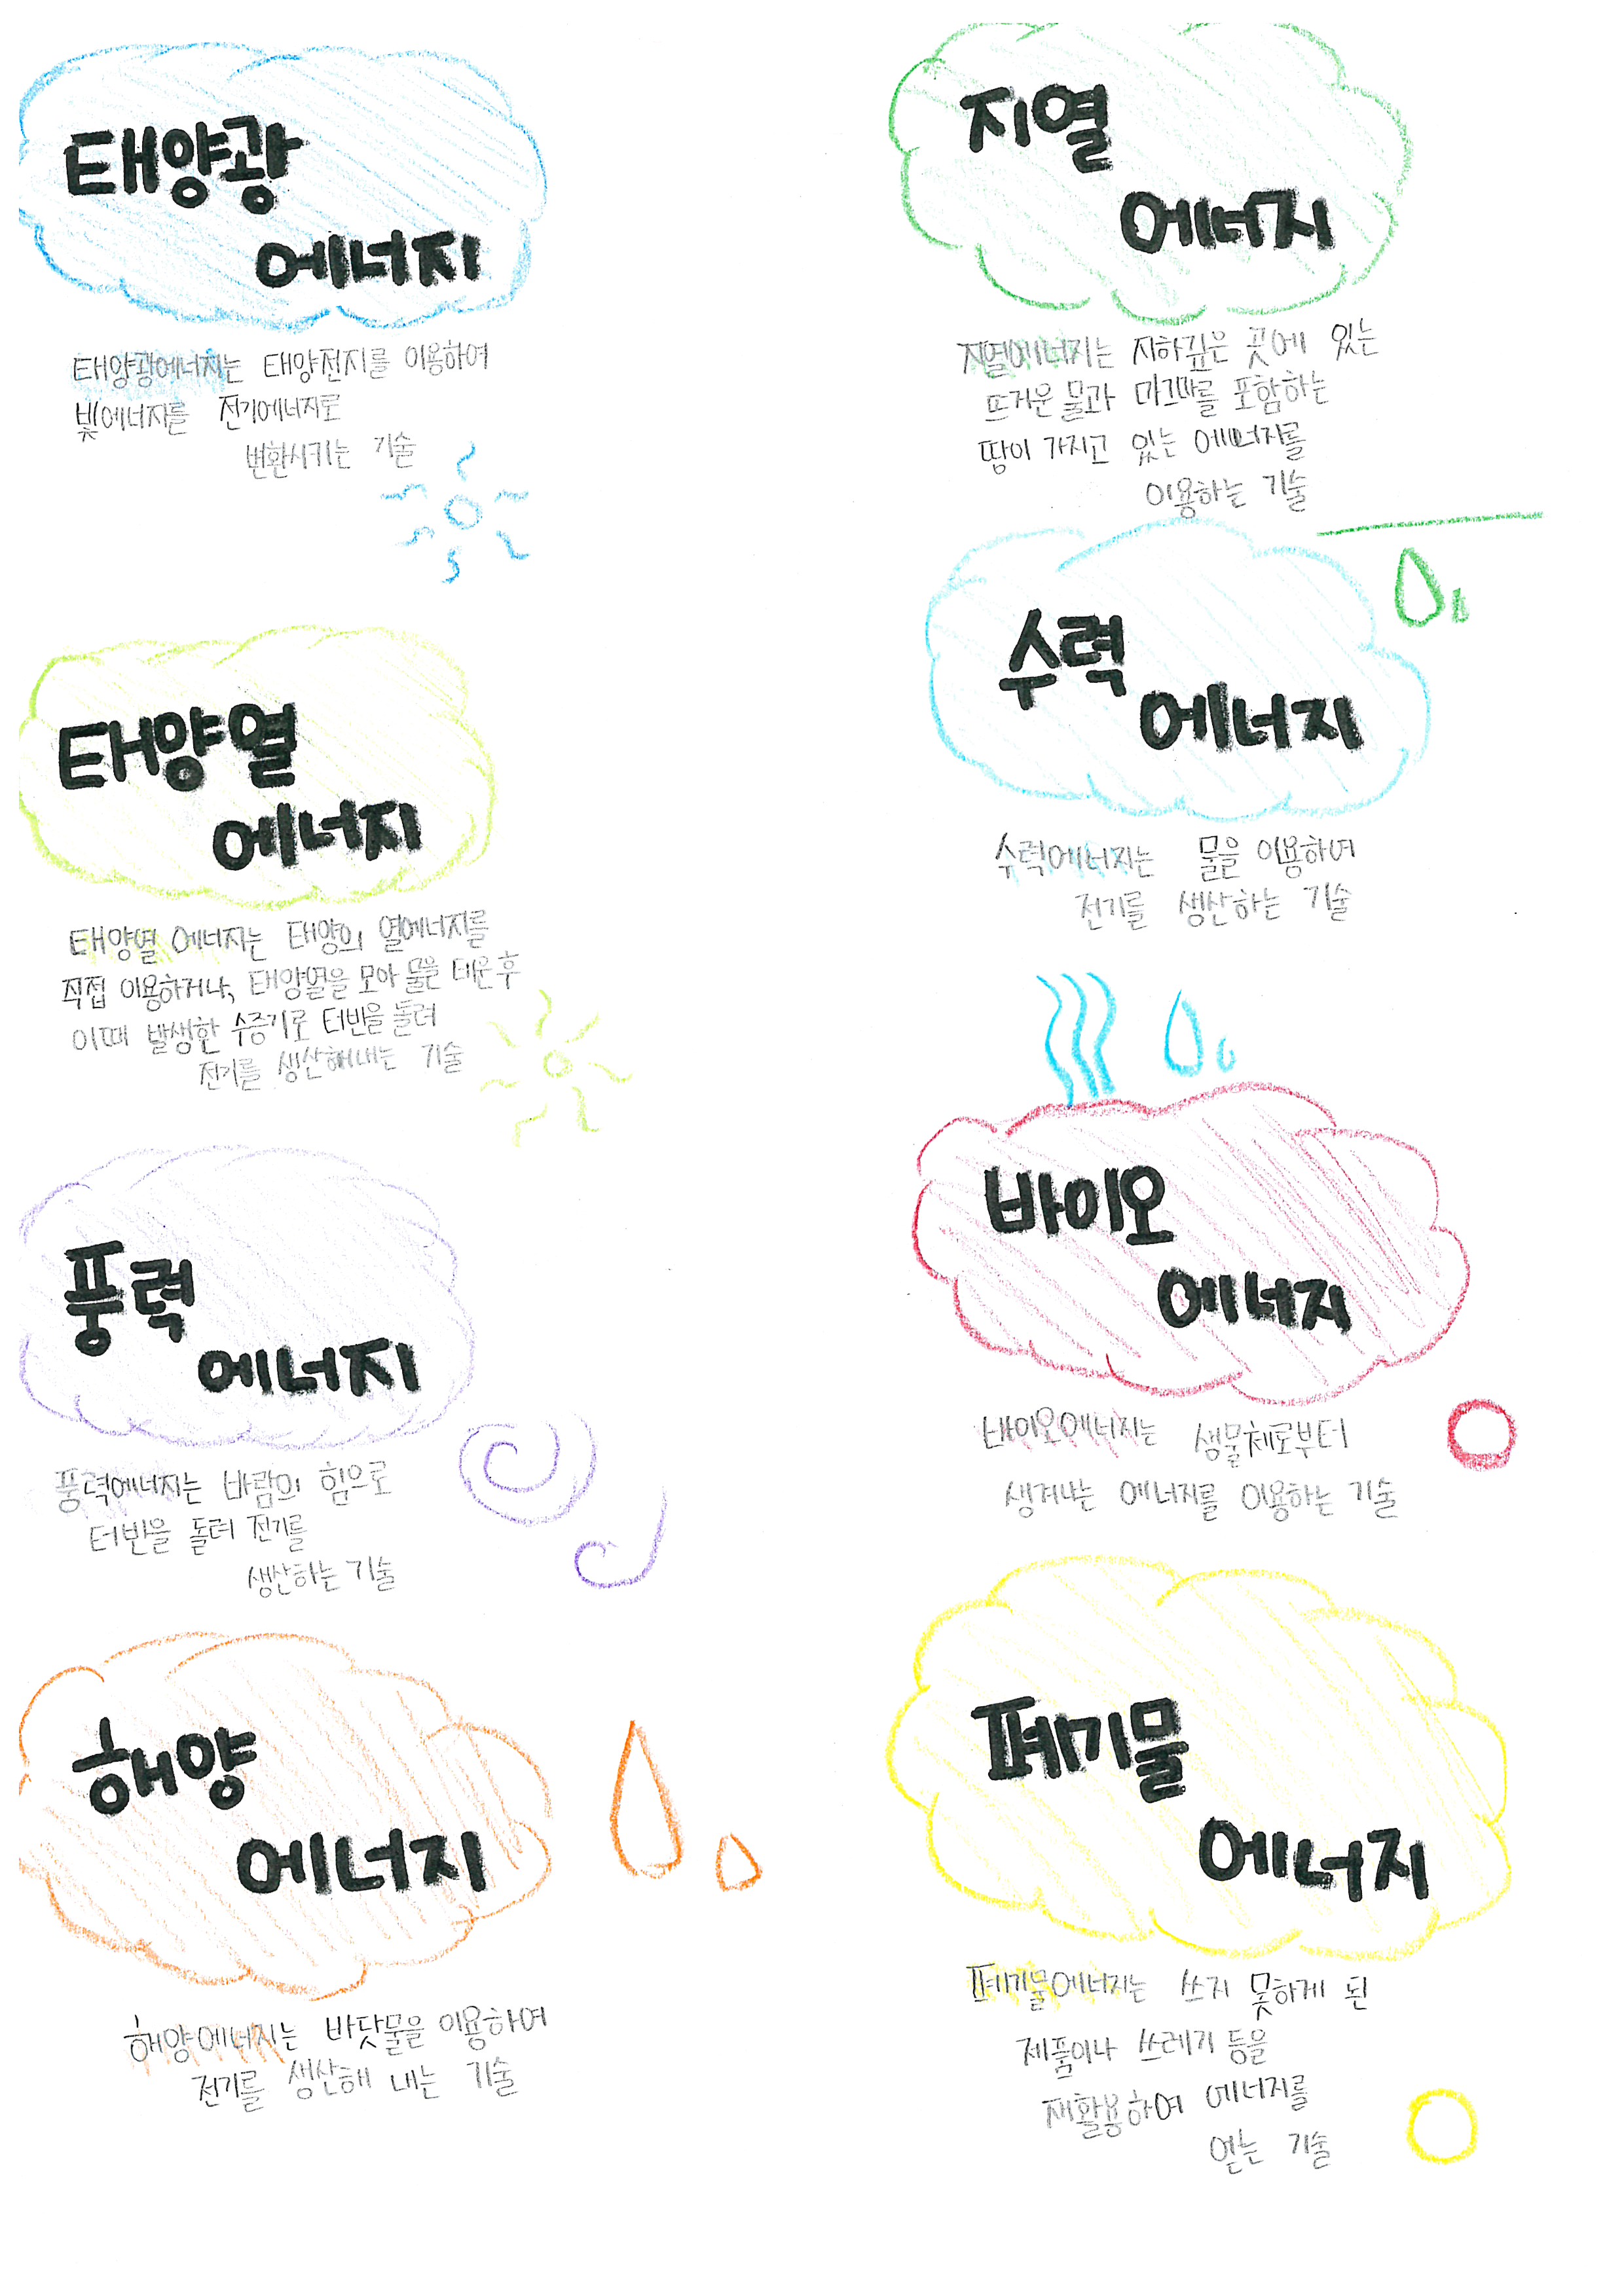 태양광
에너지
태양광에너지는 태양전지를 이용하여
빛에너지를 전기에너지로
변환시키는 기술
태양열
에너지
태양열 에너지는 태양의 열에너지를
직접 이용하거나, 태양열을 모아 물을 데운 후
이때 발생한 수증기로 터빈을 돌려
전기를 생산해내는 기술
풍력
에너지
풍력에너지는 바람의 힘으로
터빈을 돌려 전기를
생산하는 기술
해양
에너지
해양에너지는 바닷물을 이용하여
전기를 생산해 내는 기술
지열
에너지
지열에너지는 지하깊은 곳에 있는
뜨거운 물과 마그마를 포함하는
땅이 가지고 있는 에너지를
이용하는 기술
수력
에너지
수력에너지는 물을 이용하여
전기를 생산하는 기술
바이오
에너지
바이오에너지는 생물체로부터
생겨나는 에너지를 이용하는 기술
폐기물
에너지
폐기물에너지는 쓰지 못하게 된
제품이나 쓰레기 등을
재활용하여 에너지를
얻는 기술